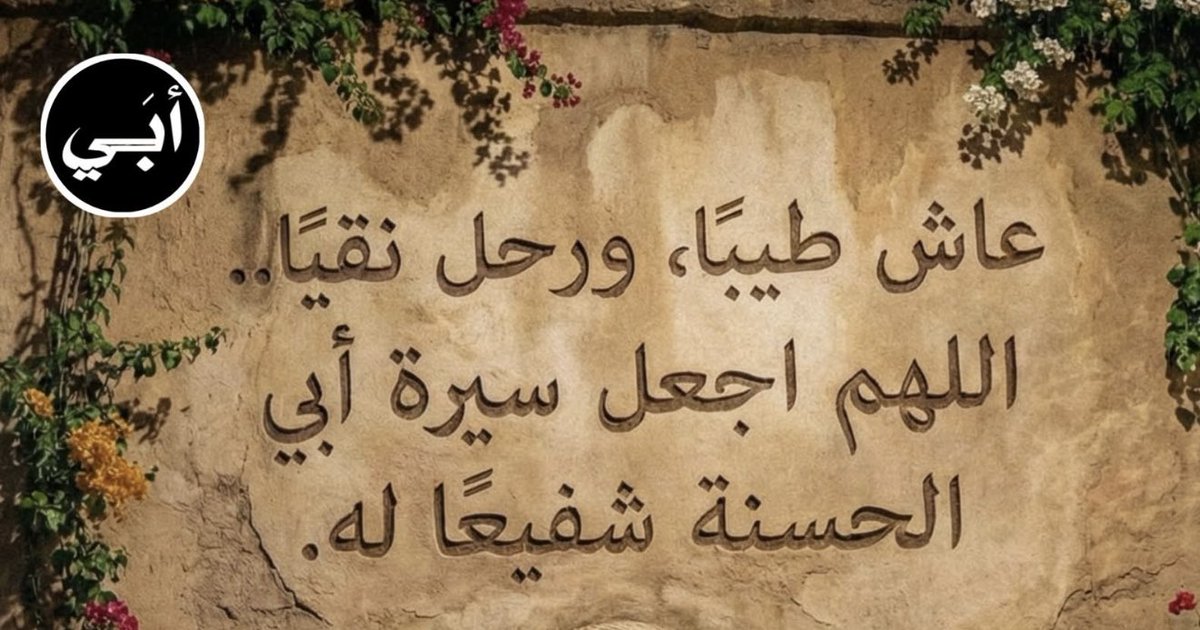 أبَي
عاش طيبًا، ورحل نقيًا..
اللهم اجعل سيرة أبي
الحسنة شفيعًا له.